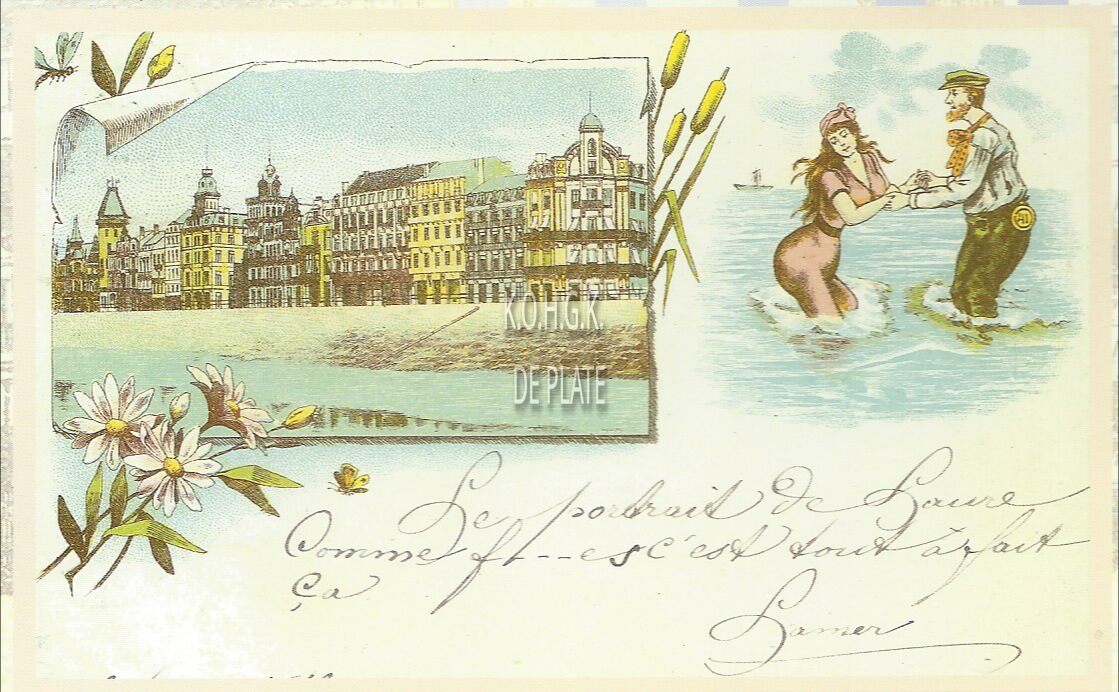 K.O.H.G.K.
DE PLATE
Le portrait de Laure
Comme f---es c'est tout à fait
ça